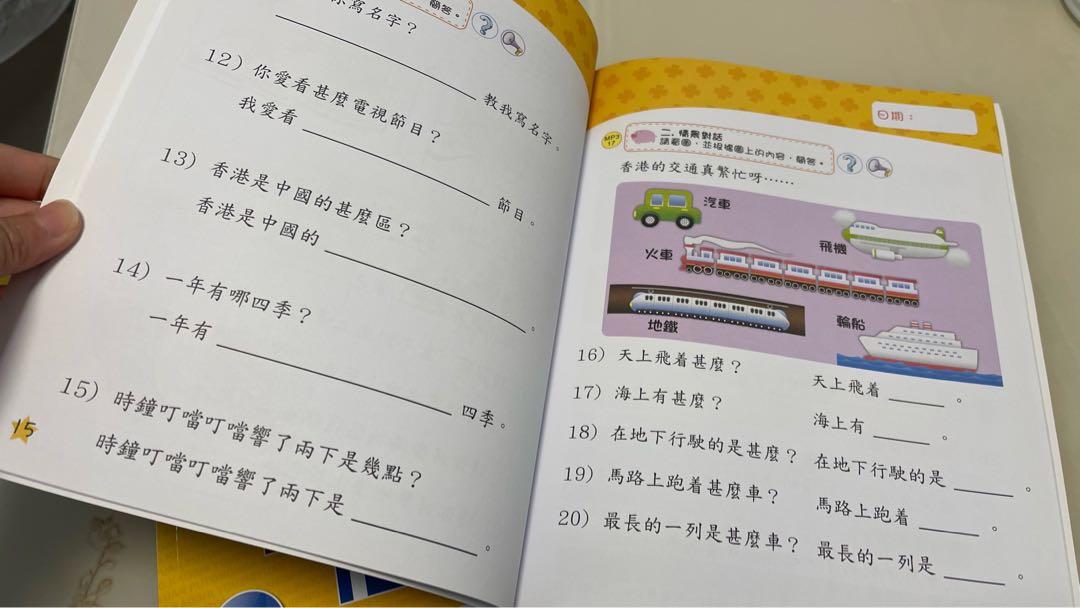 簡答。
你寫名字？
教我寫名字。
12) 你愛看甚麼電視節目？
我愛看 節目。
13) 香港是中國的甚麼區？
香港是中國的 。
14) 一年有哪四季？
一年有 四季。
15) 時鐘叮噹叮噹響了兩下是幾點？
時鐘叮噹叮噹響了兩下是 。
15
日期：
MP3
17
二. 情景對話
請看圖，並根據圖上的內容，簡答。
香港的交通真繁忙呀……
汽車
飛機
火車
地鐵
輪船
16) 天上飛着甚麼？ 天上飛着 。
17) 海上有甚麼？ 海上有 。
18) 在地下行駛的是甚麼？ 在地下行駛的是 。
19) 馬路上跑着甚麼車？ 馬路上跑着 。
20) 最長的一列是甚麼車？ 最長的一列是 。